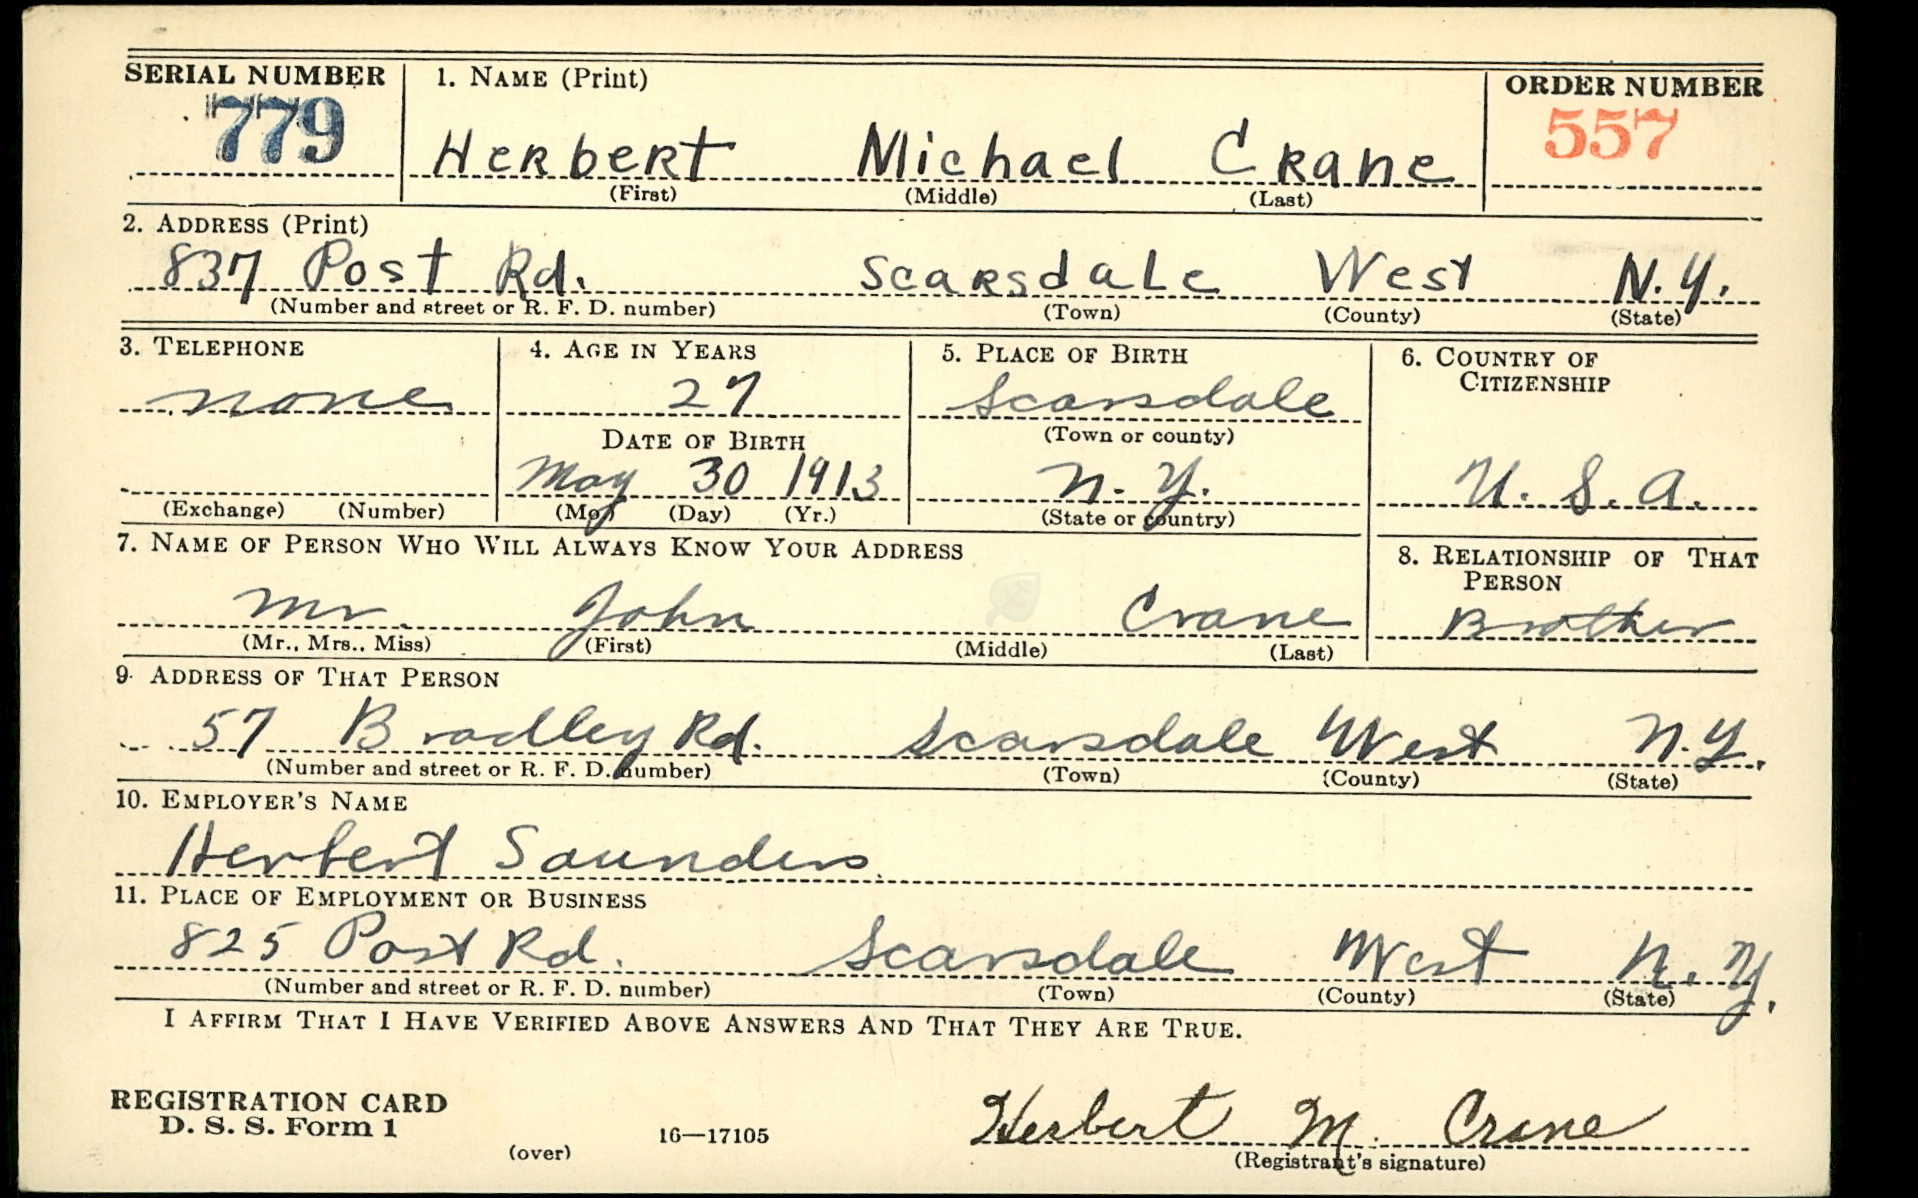 SERIAL NUMBER 1. NAME (Print) ORDER NUMBER
779 Herbert Michael Crane 557
(First) (Middle) (Last)
2. ADDRESS (Print)
837 Post Rd. Scarsdale West N.Y.
(Number and street or R. F. D. number) (Town) (County) (State)
3. TELEPHONE 4. AGE IN YEARS 5. PLACE OF BIRTH 6. COUNTRY OF
CITIZENSHIP
none 27 Scarsdale
DATE OF BIRTH (Town or county)
May 30 1913 N. Y. U. S. A.
(Exchange) (Number) (Mo.) (Day) (Yr.) (State or country)
7. NAME OF PERSON WHO WILL ALWAYS KNOW YOUR ADDRESS 8. RELATIONSHIP OF THAT
PERSON
Mr. John Crane Brother
(Mr., Mrs., Miss) (First) (Middle) (Last)
9. ADDRESS OF THAT PERSON
57 Bradley Rd. Scarsdale West N.Y.
(Number and street or R. F. D. number) (Town) (County) (State)
10. EMPLOYER'S NAME
Herbert Saunders
11. PLACE OF EMPLOYMENT OR BUSINESS
825 Post Rd. Scarsdale West N.Y.
(Number and street or R. F. D. number) (Town) (County) (State)
I AFFIRM THAT I HAVE VERIFIED ABOVE ANSWERS AND THAT THEY ARE TRUE.
REGISTRATION CARD
D. S. S. Form 1
(over) 16—17105 Herbert M. Crane
(Registrant's signature)